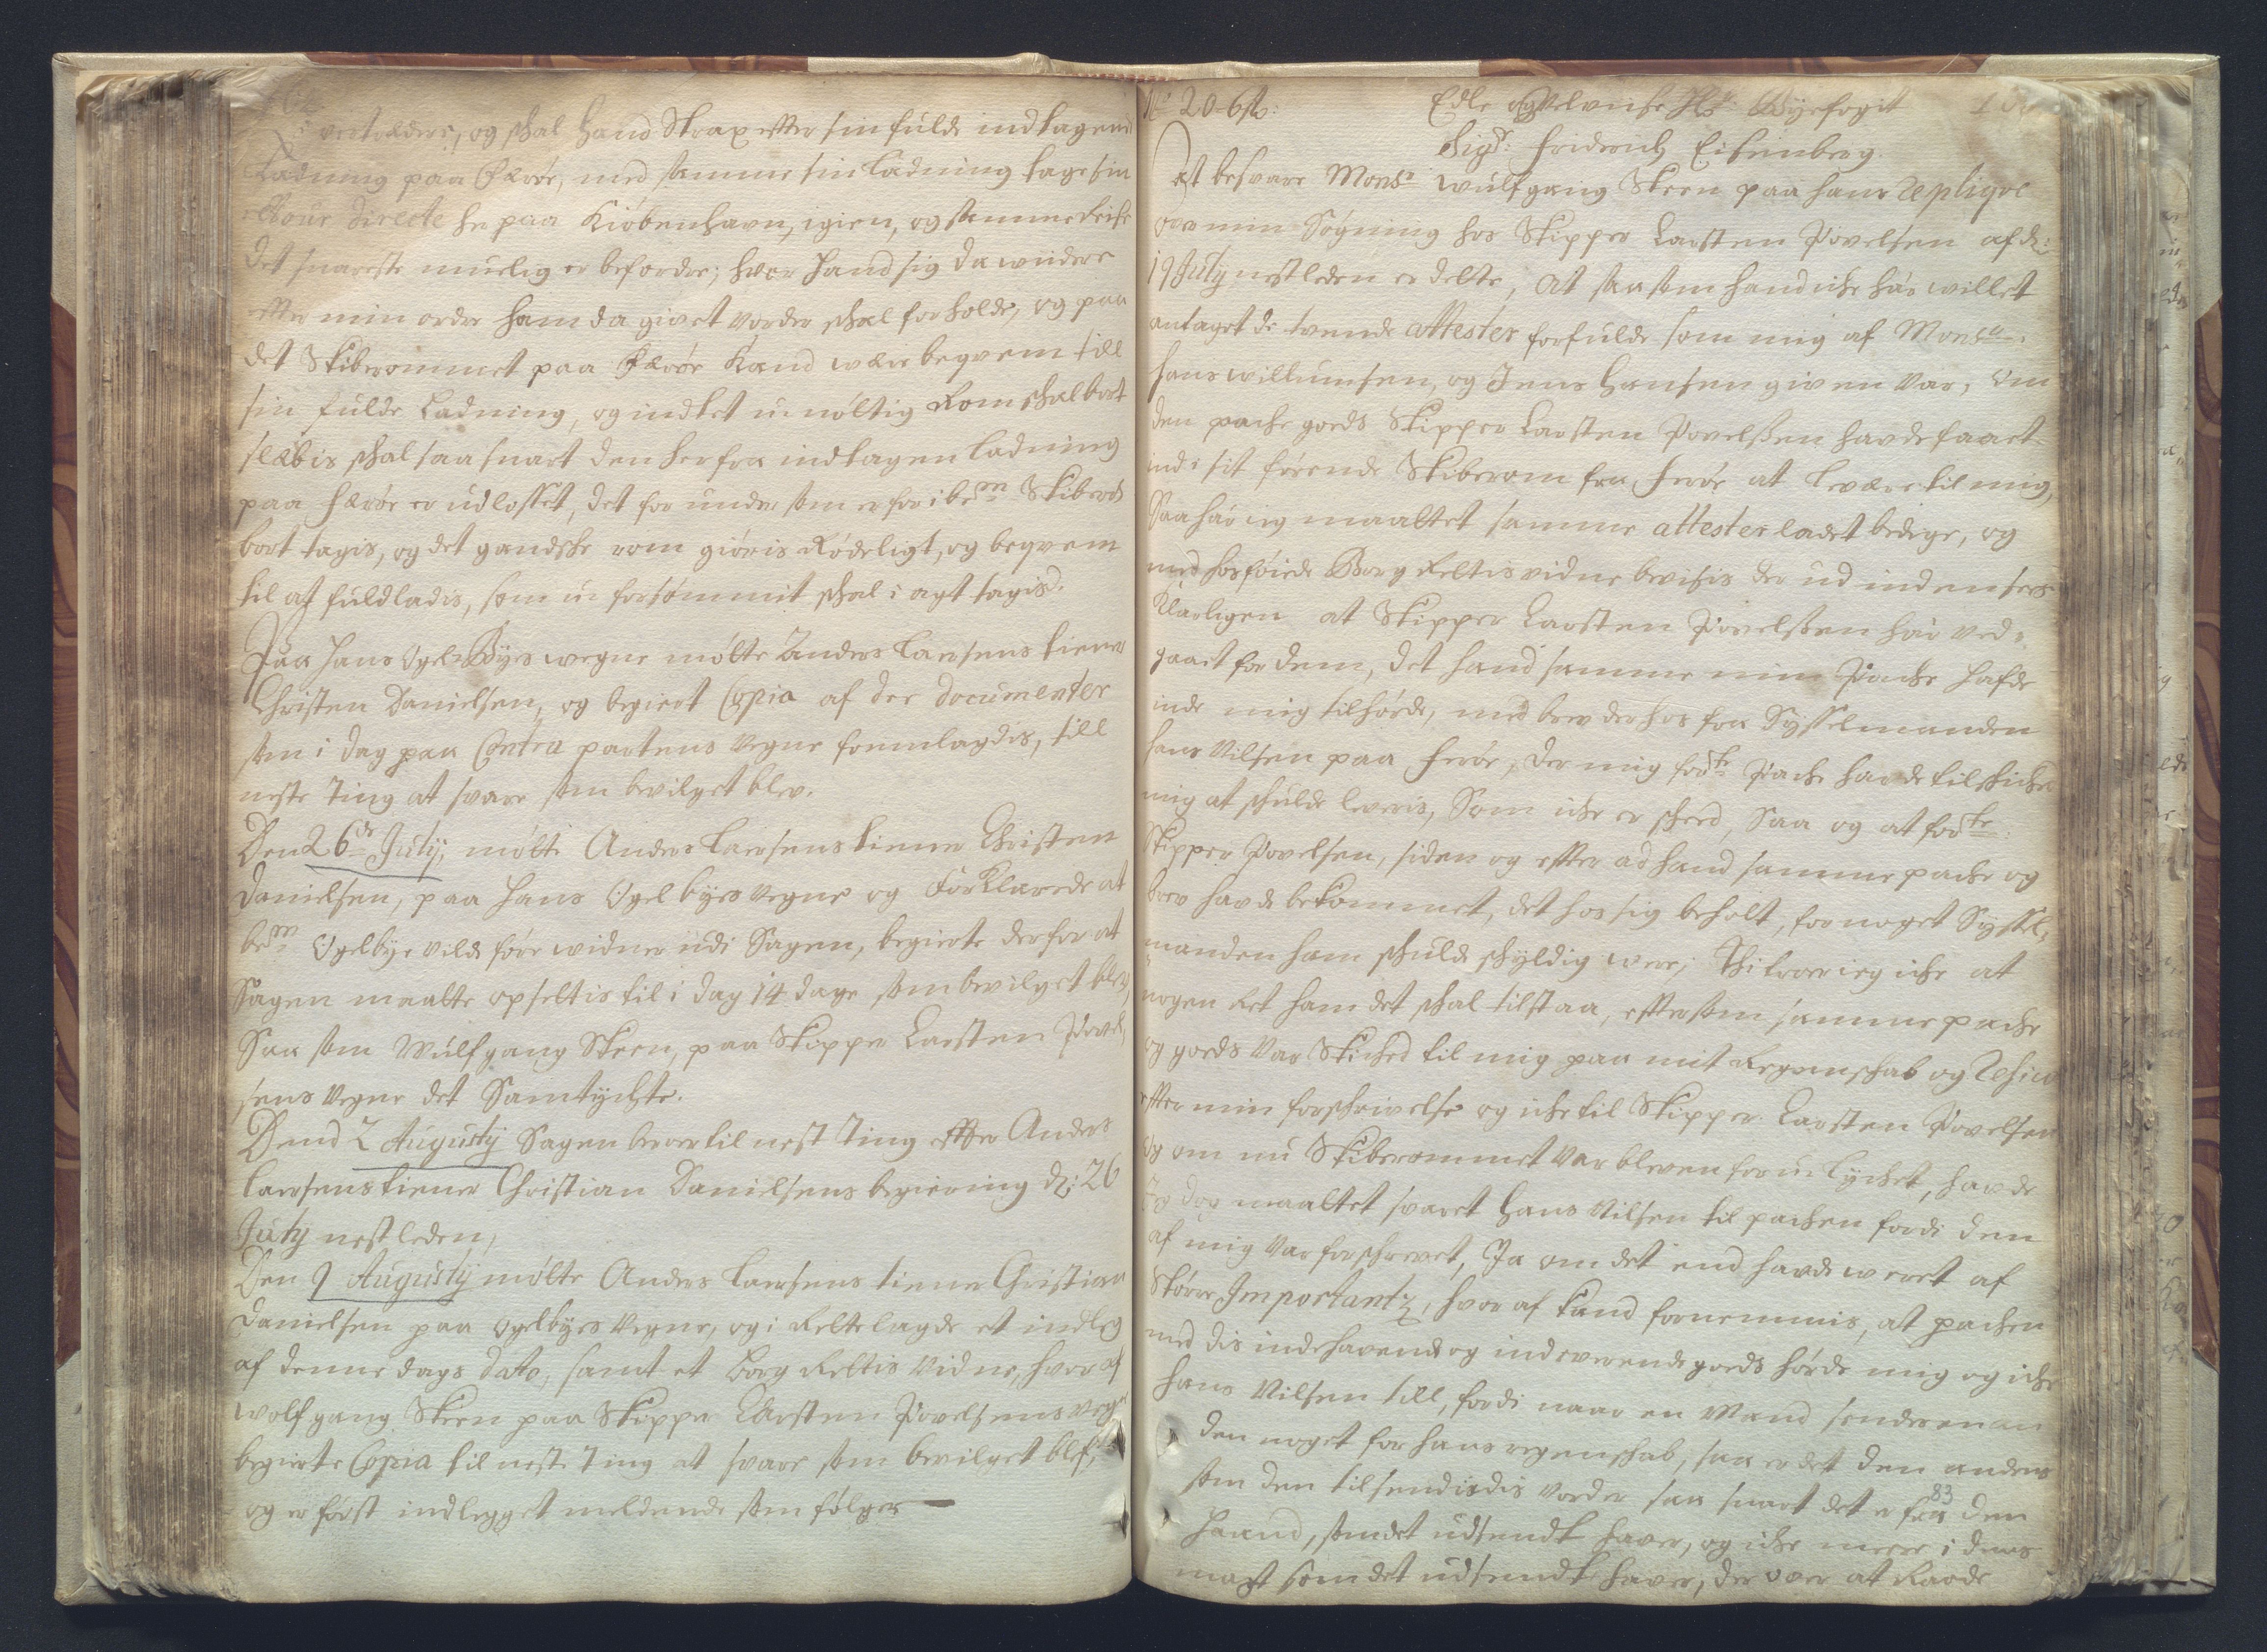 vertredere, og schal hand Strax effter sin fulde indtagende
Ladning paa Færøe, med samme sin ladning tage sin
directe he paa Kiøbenhavn, igien, og samme Reise
det snareste muelig er befordre; hvor hand sig da widere
effter min ordre ham da givet vorder schal forholde, og paa
det Skiberommet paa Færøe kand være beqvem till
sin fulde Ladning, og indtet u-nøttig Rom schal bort
slæbis schal saa snart den herfra indtagen ladning
paa Færøe er udlosset, det forunder som er for i bem.te Skiberom
bort tagis, og det gandsche rom giøris Rødeligt, og beqvem
til at fuldladis, som u-forsømmit schal i agt tagis.
Paa Hans Ogelbyes wegne møtte Anders Laersens tiener
Christen Danielsen, og begiert Copia af der documenter
som i dag paa Contra partens Vegne fremlagdis, till
neste Ting at svare som bevilget blev.
Den 26de July, møtte Anders Laersens tiener Christen
Danielsen, paa Hans Ogelbyes Vegne og forKlarede at
bem.te Ogelbye vilde føre widner udi Sagen, begierte derfor at
Sagen maatte opsettis til i dag 14 dage som bevilget blev,
Saa som Wulfgang Steen, paa Skipper Carsten Povel,
sens Vegne det Samtychte.
Dend 2 Augusty Sagen beroer til nest Ting effter Anders
Laersens tiener Christian Danielsens begiering d: 26
July nestleden,
Den 9 Augusty møtte Anders Laersens tiener Christian
Danielsen paa Ogelbyes Vegne, og i Rettelagde et indleg
af denne dags dato, samt et Borg Rettis Vidne, hvor af
Wolfgang Steen paa Skipper Carsten Povelsens Vegne
begierte Copia til neste Ting at svare som bevilget blef,
og er først indlegget meldende som følger
No 20-6st:
Edle og Velvise Hr. Byefogit
Sigr: Friderich Eisenberg.
At besvare Monsr Wulfgang Steen paa hans Repliqve
over min Søgning hos Skipper Carsten Povelsen af d:
19 July nestleden er dette, at saasom hand iche har willet
antaget de tvende attester forfulde som mig af Monsr.
Hans Willumsen, og Jens Hansen given var, om
den pache goeds Skipper Carsten Povelsen havde faaet
ind i sit førende Skiberom fra Ferøe at levere til mig,
Saa har ieg maattet samme attester ladet bedige, og
med hosføiede Borg Rettis vidne bevisis der ud inden sees
Klarligen at Skipper Carsten Povelsen har ved-
gaaet for dem, det hand samme min Pache hafde
inde mig tilhørde, med brev der hos fra Sysselmanden
Hans Nilsen paa Ferøe, der mig forte Pache havde tilschichet
mig at schulde leveris, Som iche er scheed, Saa og at forte:
Skipper Povelsen, siden og effter ad hand samme pache og
brev havde bekommet, det hos sig beholt, for noget Syssel-
manden ham schulde schyldig were; Thi troer ieg iche at
nogen Ret ham det schal tilstaa, efftersom samme pache
og goeds Var Skiched til mig paa mit Regenschab og Resico
effter min forschrivelse og iche til Skipper Carsten Povelsen
Og om nu Skiberommet Var bleven for u-lychet, havde
Jeg dog maattet svaret Hans Nilsen til pachen fordi den
af mig Var forschrevet, Ja om det end havde weret af
større Importantz, hvor af kand fornemmis, at pachen
med dis indehavende og indeverende goeds hørde mig og iche
Hans Nilsen till, fordi naar en Mand sender en an
den noget for hans regenschab, saa er det den andens
som den tilsendis dis vorder saa snart det er fra den
83
haand, som det udsendt haver, og iche mere i dens
magt som det udsendt haver, der over at Raade